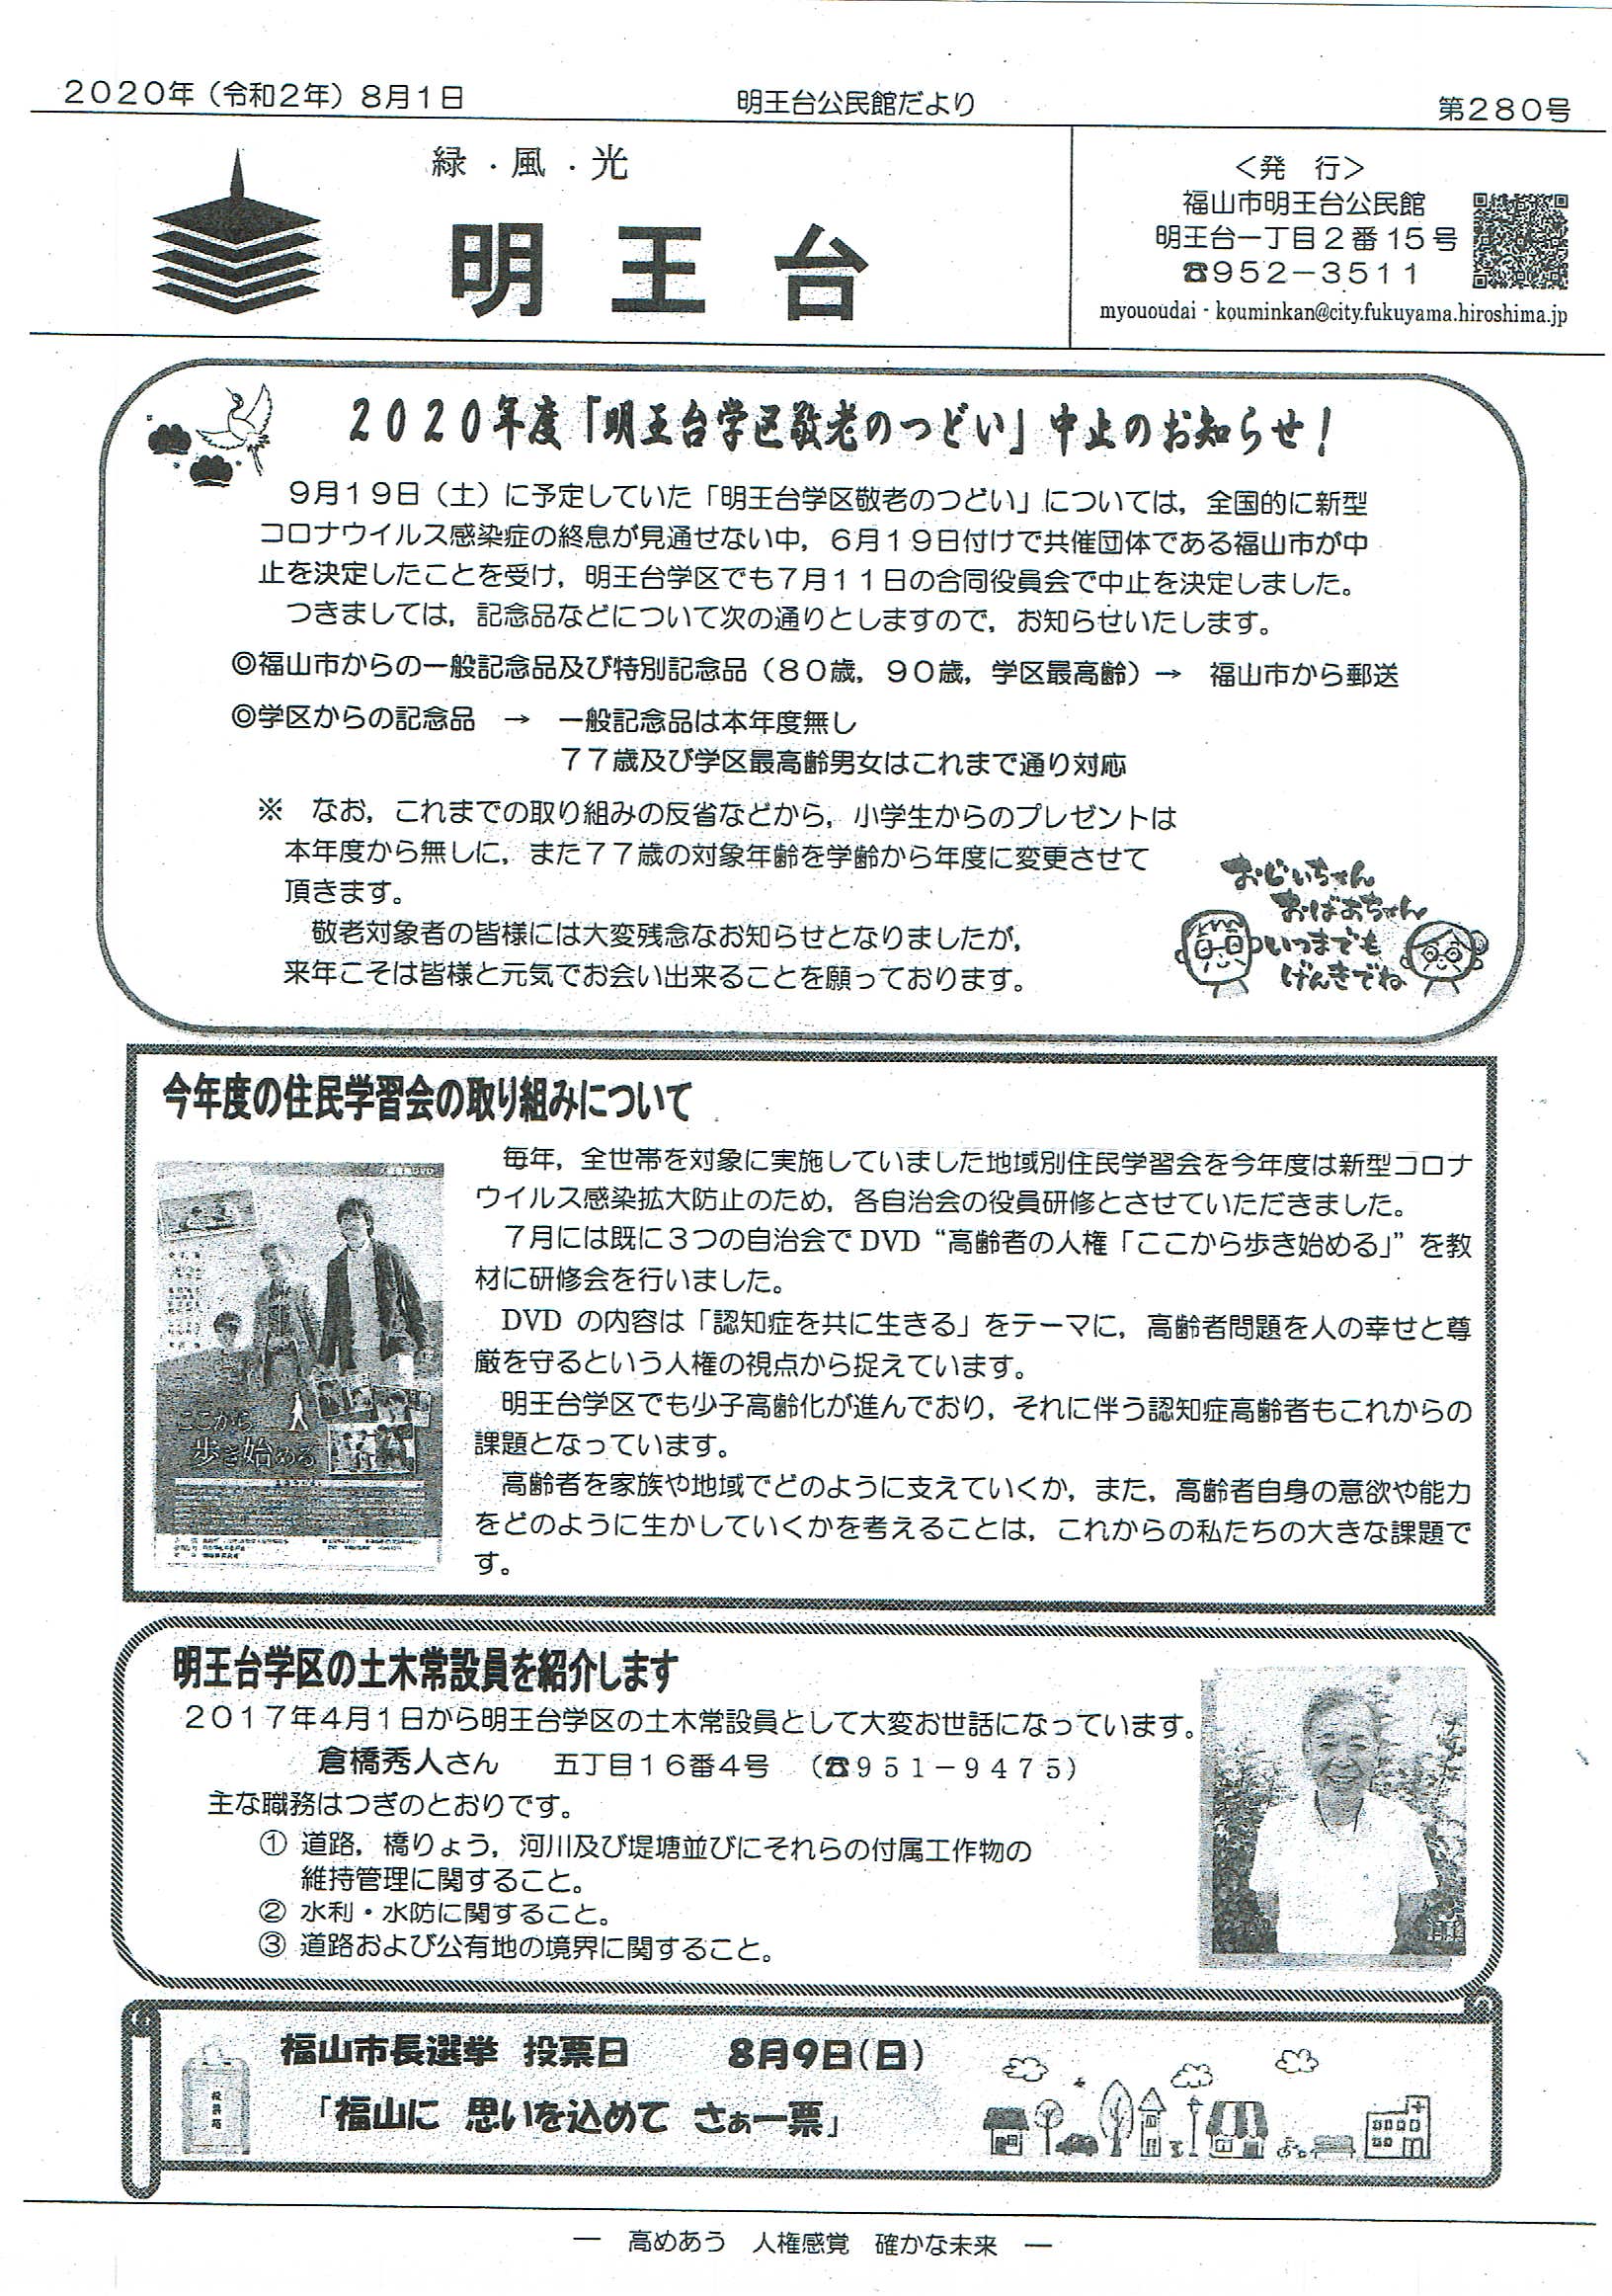 2020年（令和2年）8月1日
明王台公民館だより
第280号
緑・風・光
明王台
＜発　行＞
福山市明王台公民館
明王台一丁目2番15号
☎952－3511
myououdai - kouminkan@city.fukuyama.hiroshima.jp
2020年度「明王台学区敬老のつどい」中止のお知らせ！
9月19日（土）に予定していた「明王台学区敬老のつどい」については，全国的に新型
コロナウイルス感染症の終息が見通せない中，6月19日付けで共催団体である福山市が中
止を決定したことを受け，明王台学区でも7月11日の合同役員会で中止を決定しました。
つきましては，記念品などについて次の通りとしますので，お知らせいたします。
◎福山市からの一般記念品及び特別記念品（80歳，90歳，学区最高齢）→　福山市から郵送
◎学区からの記念品　→　一般記念品は本年度無し
77歳及び学区最高齢男女はこれまで通り対応
※　なお，これまでの取り組みの反省などから，小学生からのプレゼントは
本年度から無しに，また77歳の対象年齢を学齢から年度に変更させて
頂きます。
敬老対象者の皆様には大変残念なお知らせとなりましたが，
来年こそは皆様と元気でお会い出来ることを願っております。
おじいちゃん
おばあちゃん
いつまでも
げんきでね
今年度の住民学習会の取り組みについて
毎年，全世帯を対象に実施していました地域別住民学習会を今年度は新型コロナ
ウイルス感染拡大防止のため，各自治会の役員研修とさせていただきました。
7月には既に3つの自治会でDVD“高齢者の人権「ここから歩き始める」”を教
材に研修会を行いました。
DVD の内容は「認知症を共に生きる」をテーマに，高齢者問題を人の幸せと尊
厳を守るという人権の視点から捉えています。
明王台学区でも少子高齢化が進んでおり，それに伴う認知症高齢者もこれからの
課題となっています。
高齢者を家族や地域でどのように支えていくか，また，高齢者自身の意欲や能力
をどのように生かしていくかを考えることは，これからの私たちの大きな課題で
す。
ここから
歩き始める
明王台学区の土木常設員を紹介します
2017年4月1日から明王台学区の土木常設員として大変お世話になっています。
倉橋秀人さん　　五丁目16番4号　（☎951－9475）
主な職務はつぎのとおりです。
① 道路，橋りょう，河川及び堤塘並びにそれらの付属工作物の
維持管理に関すること。
② 水利・水防に関すること。
③ 道路および公有地の境界に関すること。
福山市長選挙　投票日　　8月9日（日）
「福山に　思いを込めて　さぁ一票」
投票箱
―　高めあう　人権感覚　確かな未来　―